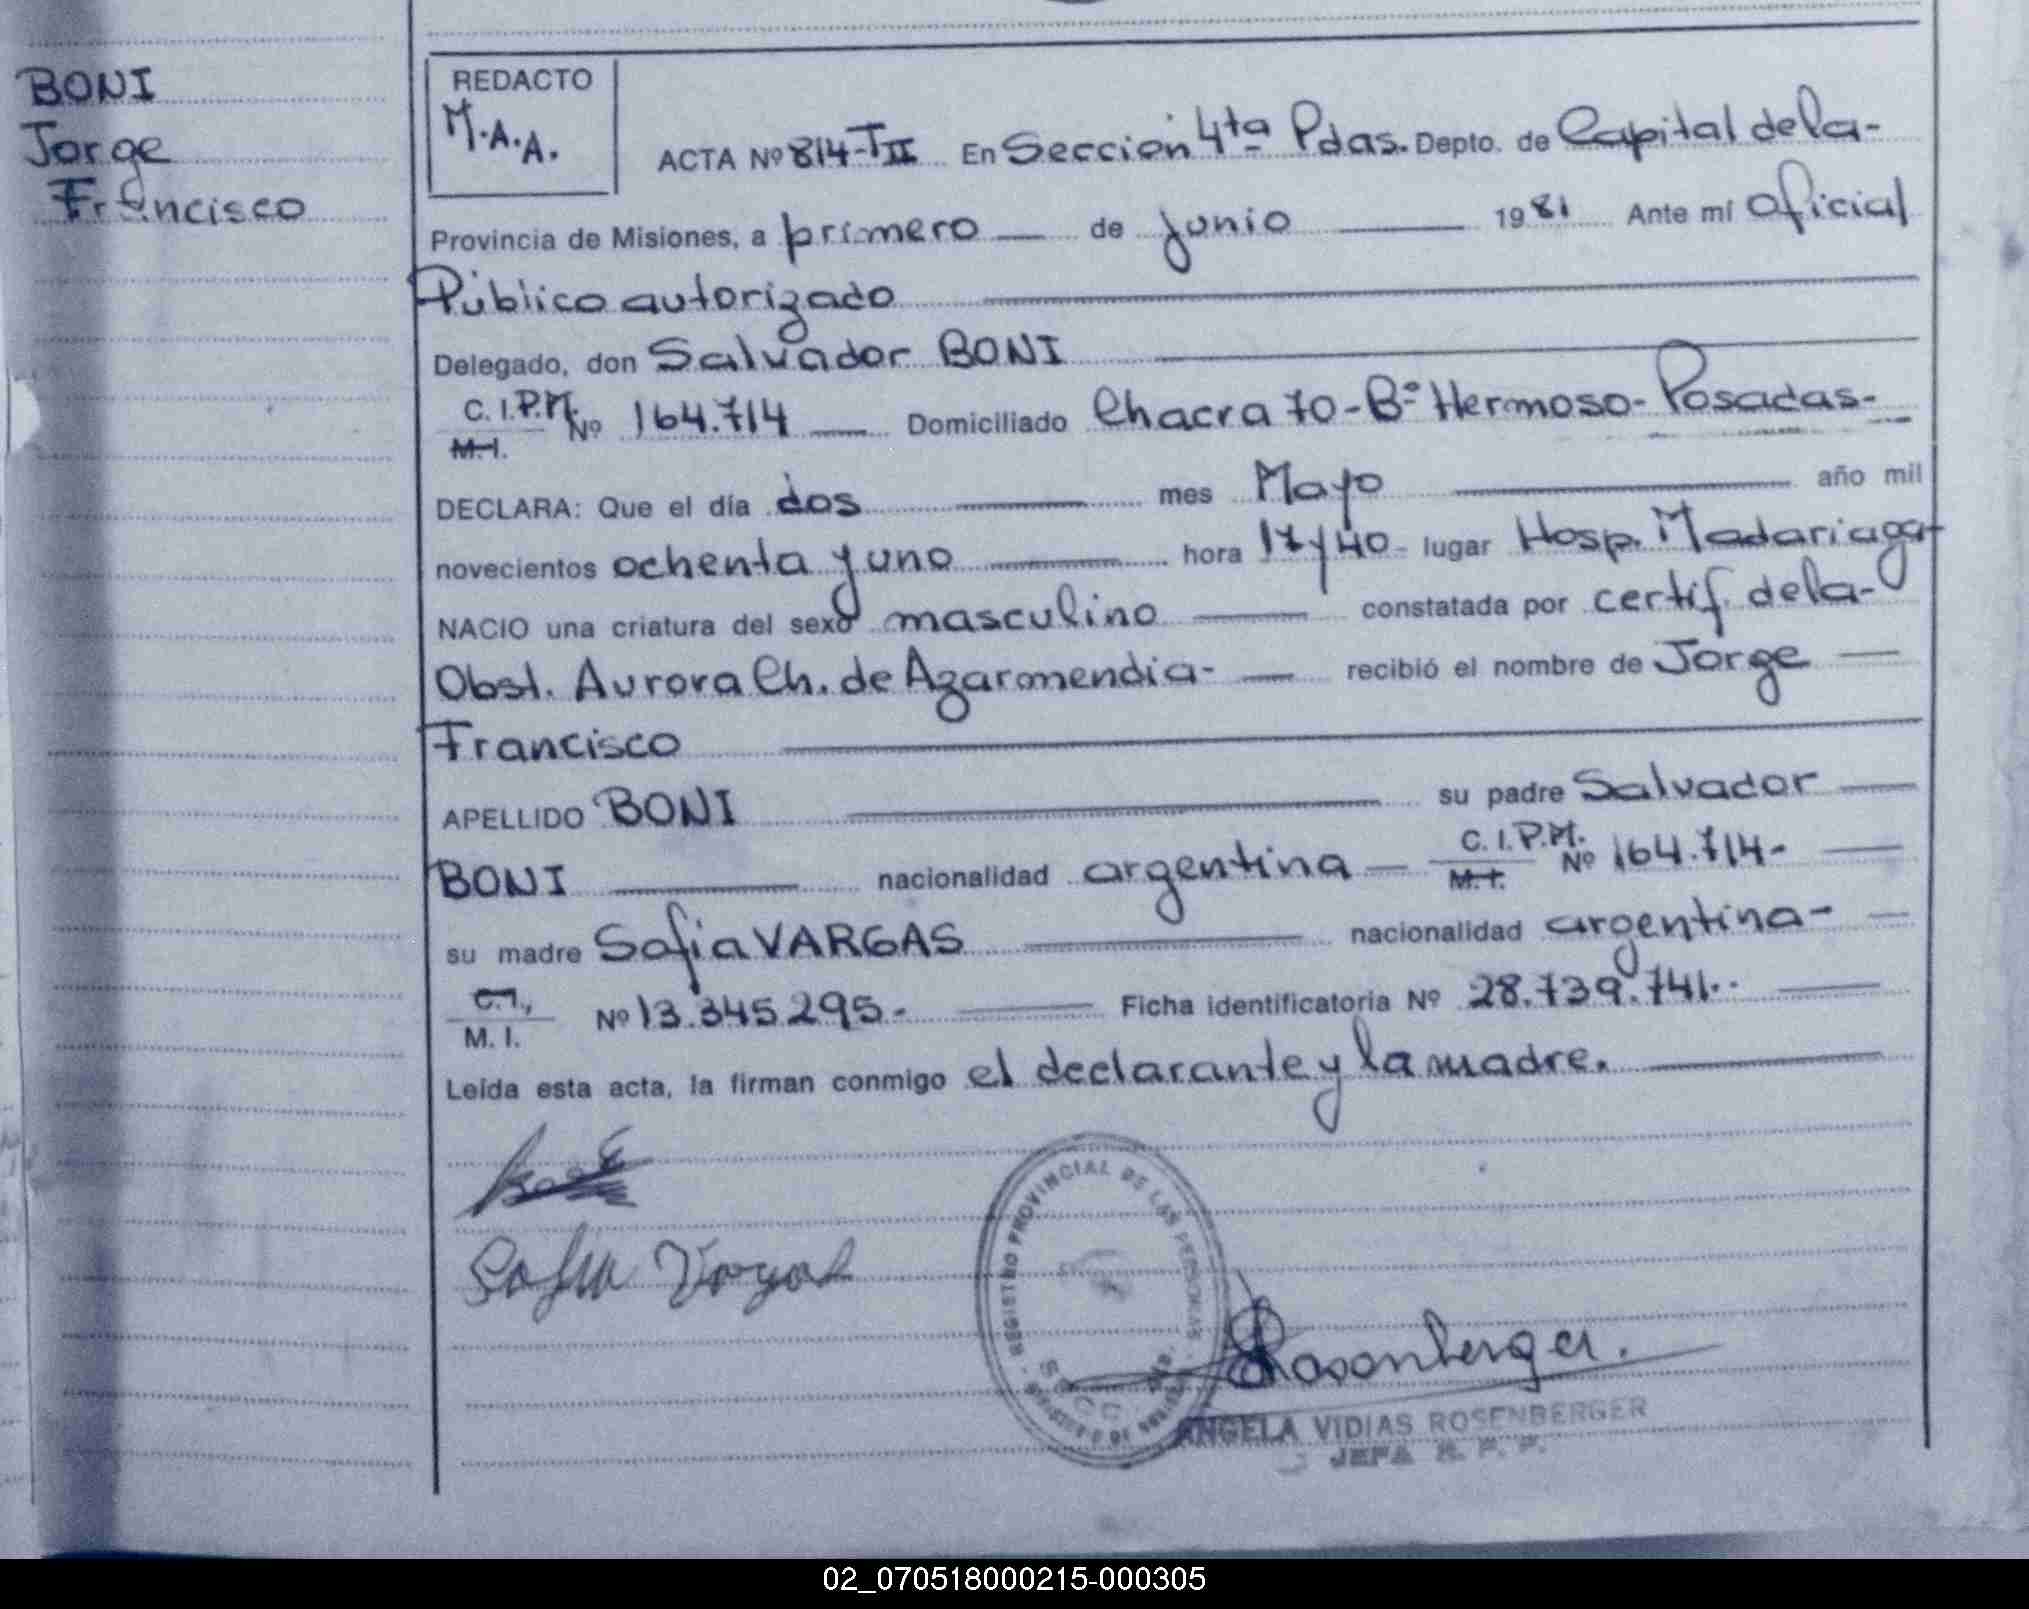 BONI
Jorge
Francisco
REDACTO
M.A.A.
ACTA Nº 814-TII En Sección 4ta Pdas. Depto. de Capital de la-
Provincia de Misiones, a primero de junio 1981 Ante mí Oficial
Público autorizado
Delegado, don Salvador BONI
C. I. P.M. Nº 164.714 Domiciliado Chacra 70-Bº Hermoso-Posadas-
M. I.
DECLARA: Que el día dos mes Mayo año mil
novecientos ochenta y uno hora 17y40- lugar Hosp. Madariaga-
NACIO una criatura del sexo masculino constatada por certif. de la-
Obst. Aurora Ch. de Azarmendia- recibió el nombre de Jorge
Francisco
APELLIDO BONI su padre Salvador
BONI nacionalidad argentina C. I. P.M. Nº 164.714-
M. I.
su madre Sofia VARGAS nacionalidad argentina-
C. I., Nº 13.345.295.- Ficha identificatoria Nº 28.739.741.-
M. I.
Leída esta acta, la firman conmigo el declarante y la madre.
Sofia Vargas
REGISTRO PROVINCIAL DE LAS PERSONAS
Rosenberger.
ANGELA VIDIAS ROSENBERGER
JEFA R. P. P.
02_070518000215-000305